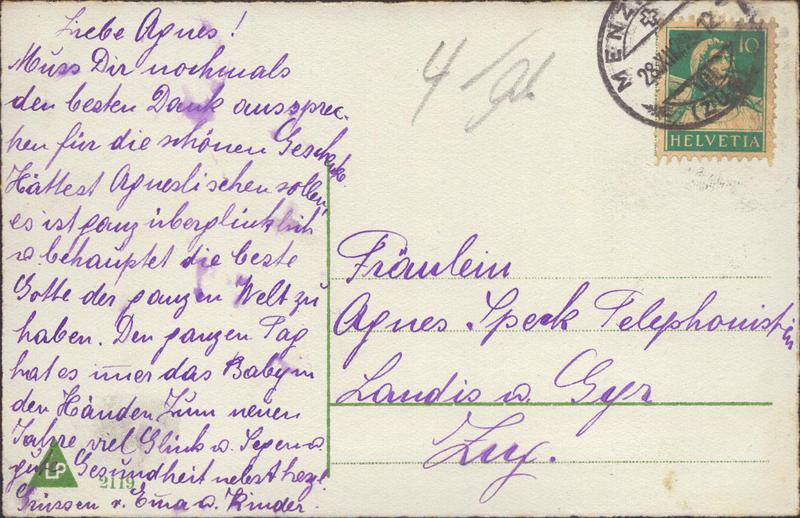 Liebe Agnes!
Muss Dir nochmals
den besten Dank ausspre-
chen für die schönen Geschenke.
Hättest Agneslischen sollen,
es ist ganz überglücklich
u. behauptet die beste
Gotte der ganzen Welt zu
haben. Den ganzen Tag
hat es imer das Baby in
den Händen. Zum neuen
Jahre viel Glück u. Segen u.
gute Gesundheit nebst herzl.
Grüssen v. Ema u. Kinder.
LP
2119
4
MENZ
28.XII.
12
(ZUG)
10
HELVETIA
Fräulein
Agnes Speck Telephonistin
Landis u. Gyr
Zug.